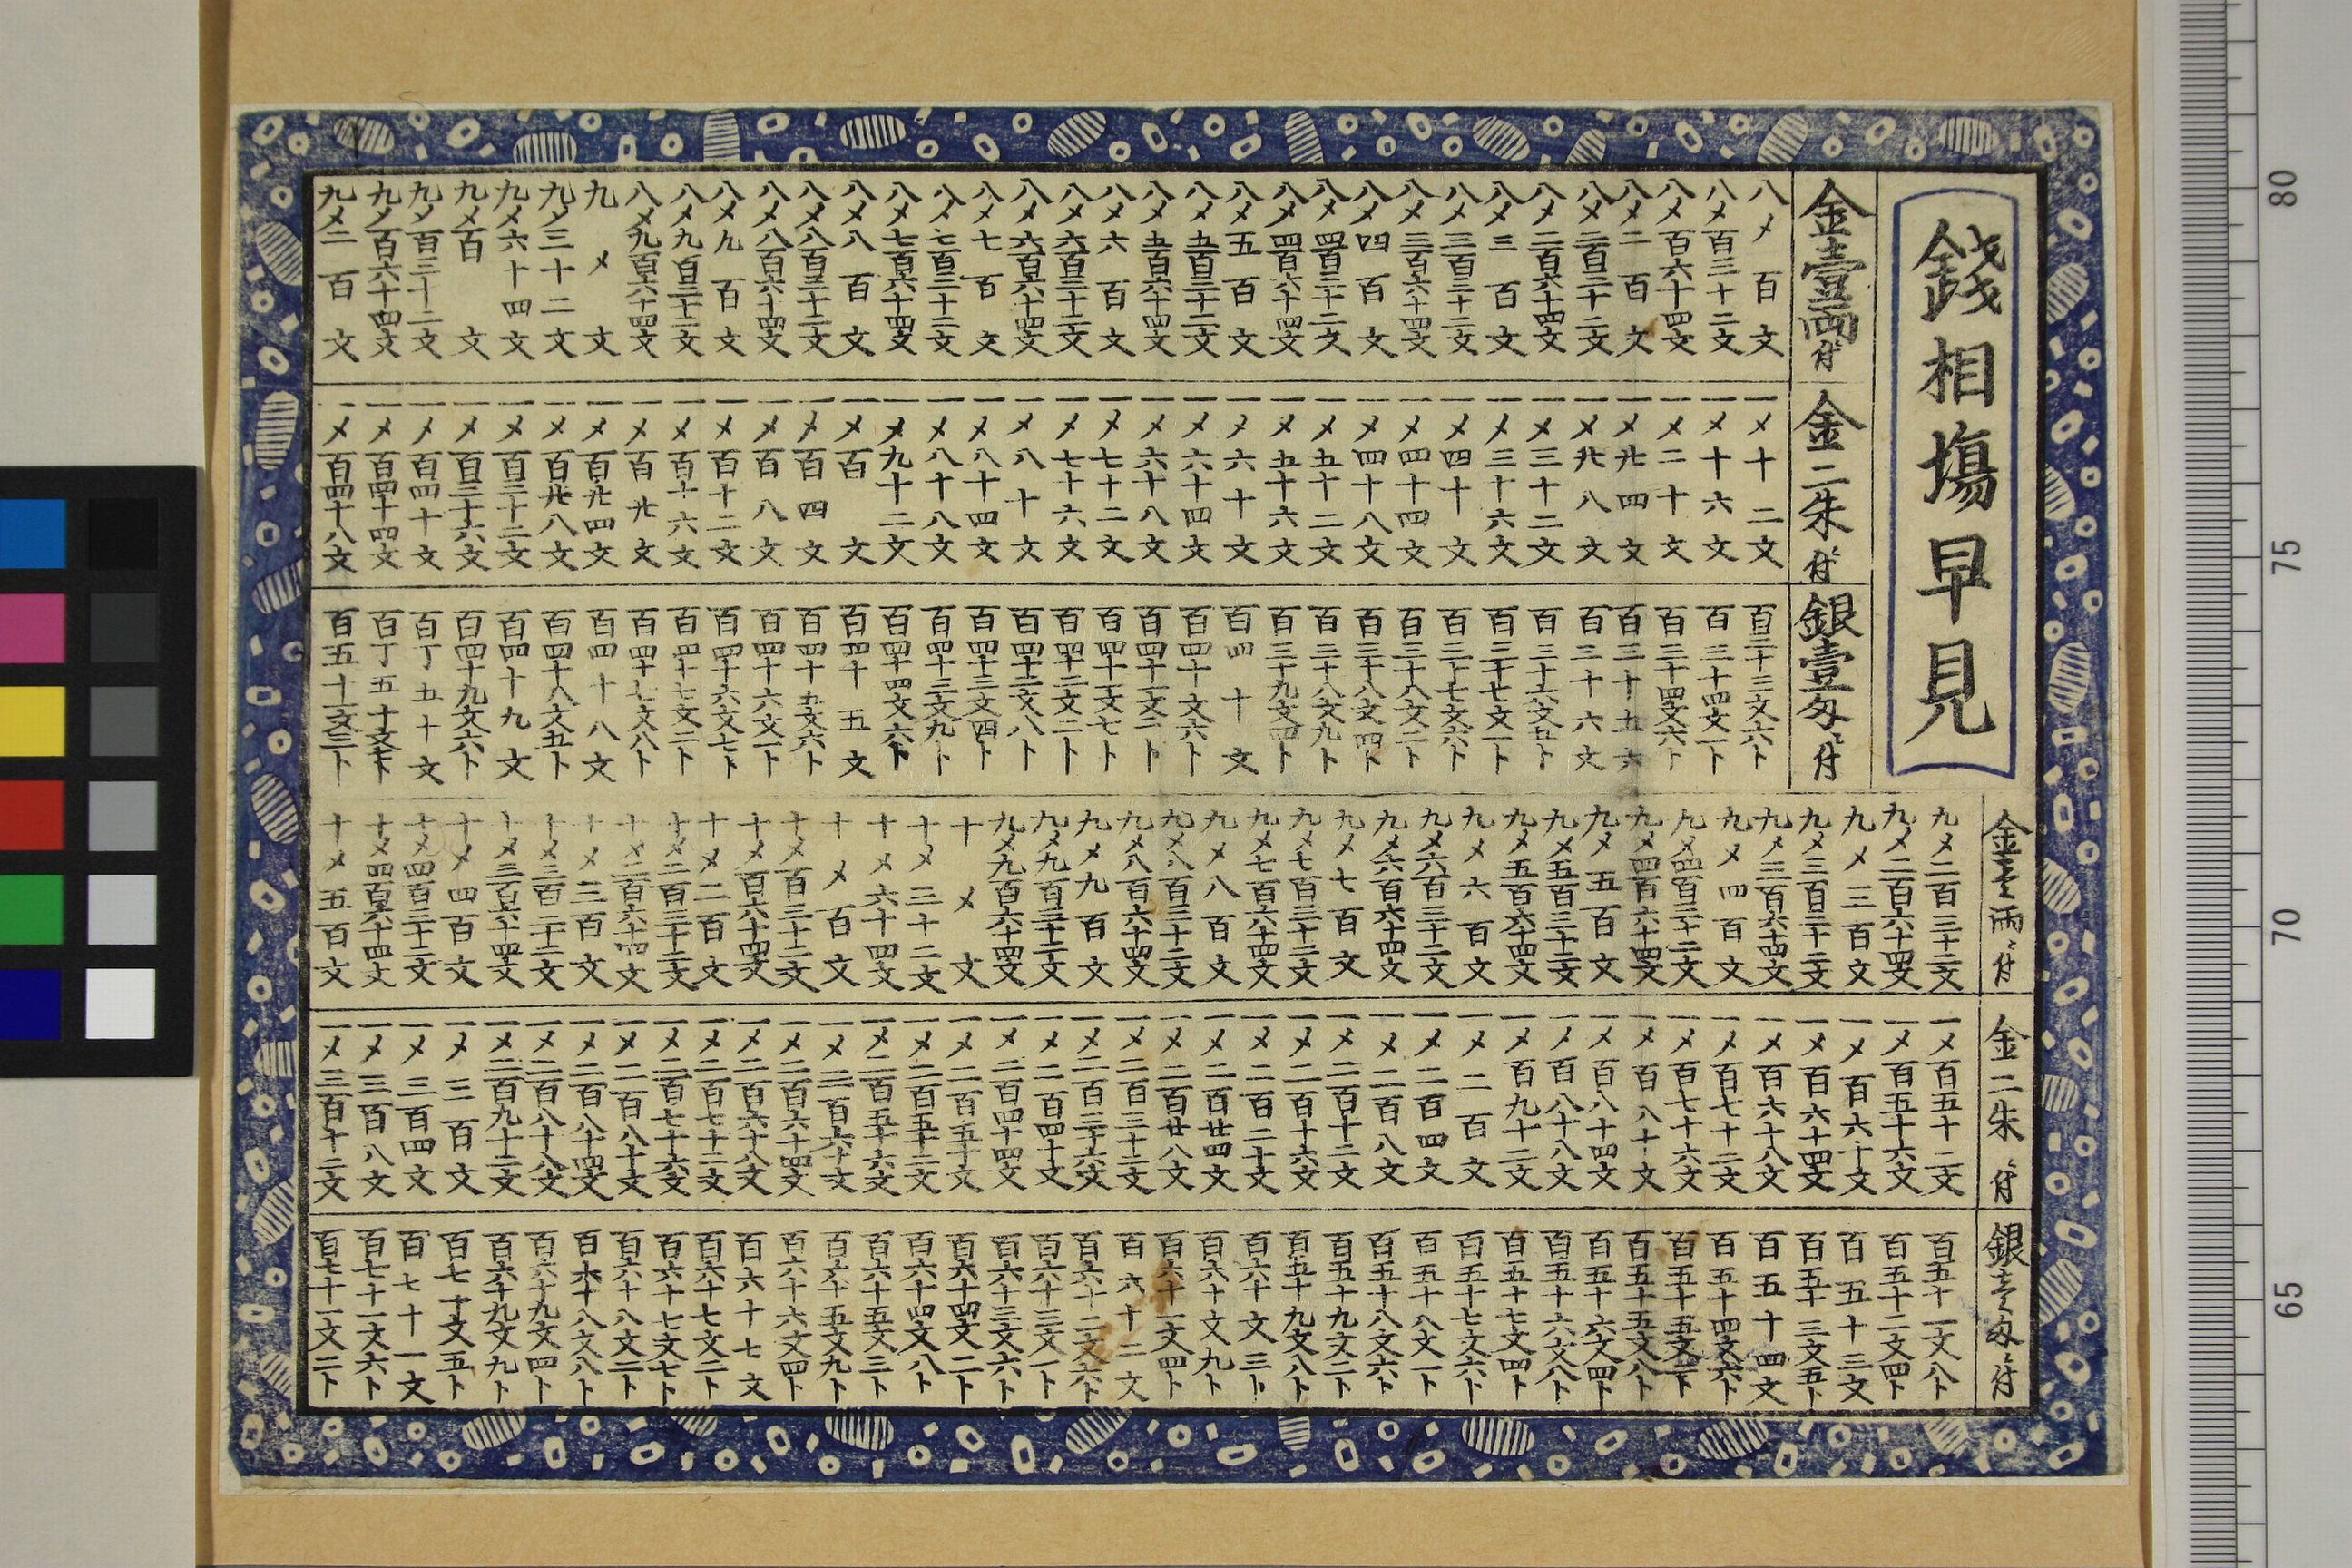 銭相場早見
金壹両ニ付
八メ百文
八メ百三十二文
八メ百六十四文
八メ二百文
八メ二百三十二文
八メ二百六十四文
八メ三百文
八メ三百三十二文
八メ三百六十四文
八メ四百文
八メ四百三十二文
八メ四百六十四文
八メ五百文
八メ五百三十二文
八メ五百六十四文
八メ六百文
八メ六百三十二文
八メ六百六十四文
八メ七百文
八メ七百三十二文
八メ七百六十四文
八メ八百文
八メ八百三十二文
八メ八百六十四文
八メ九百文
八メ九百三十二文
八メ九百六十四文
九メ文
九メ三十二文
九メ六十四文
九メ百文
九メ百三十二文
九メ百六十四文
九メ二百文
金二朱ニ付
一メ十二文
一メ十六文
一メ二十文
一メ廿四文
一メ廿八文
一メ三十二文
一メ三十六文
一メ四十文
一メ四十四文
一メ四十八文
一メ五十二文
一メ五十六文
一メ六十文
一メ六十四文
一メ六十八文
一メ七十二文
一メ七十六文
一メ八十文
一メ八十四文
一メ八十八文
一メ九十二文
一メ百文
一メ百四文
一メ百八文
一メ百十二文
一メ百十六文
一メ百廿文
一メ百廿四文
一メ百廿八文
一メ百三十二文
一メ百三十六文
一メ百四十文
一メ百四十四文
一メ百四十八文
銀壹匁ニ付
百三十三文六卜
百三十四文一卜
百三十四文六卜
百三十五六
百三十六文
百三十六文五卜
百三十七文一卜
百三十七文六卜
百三十八文二卜
百三十八文四卜
百三十八文九卜
百三十九文四卜
百四十文
百四十文六卜
百四十一文二卜
百四十一文七卜
百四十二文二卜
百四十二文八卜
百四十三文四卜
百四十三文九卜
百四十四文六卜
百四十五文
百四十五文六卜
百四十六文一卜
百四十六文七卜
百四十七文二卜
百四十七文八卜
百四十八文
百四十八文五卜
百四十九文
百四十九文六卜
百丁五十文
百丁五十文七卜
百五十一文三卜
金壹両ニ付
九メ二百三十二文
九メ二百六十四文
九メ三百文
九メ三百三十二文
九メ三百六十四文
九メ四百文
九メ四百三十二文
九メ四百六十四文
九メ五百文
九メ五百三十二文
九メ五百六十四文
九メ六百文
九メ六百三十二文
九メ六百六十四文
九メ七百文
九メ七百三十二文
九メ七百六十四文
九メ八百文
九メ八百三十二文
九メ八百六十四文
九メ九百文
九メ九百三十二文
九メ九百六十四文
十メ文
十メ三十二文
十メ六十四文
十メ百文
十メ百三十二文
十メ百六十四文
十メ二百文
十メ二百三十二文
十メ二百六十四文
十メ三百文
十メ三百三十二文
十メ三百六十四文
十メ四百文
十メ四百三十二文
十メ四百六十四文
十メ五百文
金二朱ニ付
一メ百五十二文
一メ百五十六文
一メ百六十文
一メ百六十四文
一メ百六十八文
一メ百七十二文
一メ百七十六文
一メ百八十文
一メ百八十四文
一メ百八十八文
一メ百九十二文
一メ二百文
一メ二百四文
一メ二百八文
一メ二百十二文
一メ二百十六文
一メ二百二十文
一メ二百廿四文
一メ二百廿八文
一メ二百三十二文
一メ二百三十六文
一メ二百四十文
一メ二百四十四文
一メ二百五十文
一メ二百五十二文
一メ二百五十六文
一メ二百六十文
一メ二百六十四文
一メ二百六十八文
一メ二百七十二文
一メ二百七十六文
一メ二百八十文
一メ二百八十四文
一メ二百八十八文
一メ二百九十二文
一メ三百文
一メ三百四文
一メ三百八文
一メ三百十二文
銀壹匁ニ付
百五十一文八卜
百五十二文四卜
百五十三文
百五十三文五卜
百五十四文
百五十四文六卜
百五十五文二卜
百五十五文八卜
百五十六文四卜
百五十六文八卜
百五十七文四卜
百五十七文六卜
百五十八文一卜
百五十八文六卜
百五十九文二卜
百五十九文八卜
百六十文三卜
百六十文九卜
百六十一文四卜
百六十二文
百六十二文六卜
百六十三文一卜
百六十三文六卜
百六十四文二卜
百六十四文八卜
百六十五文三卜
百六十五文九卜
百六十六文四卜
百六十七文
百六十七文二卜
百六十七文七卜
百六十八文二卜
百六十八文八卜
百六十九文四卜
百六十九文九卜
百七十文五卜
百七十一文
百七十一文六卜
百七十一文二卜
80
75
70
65